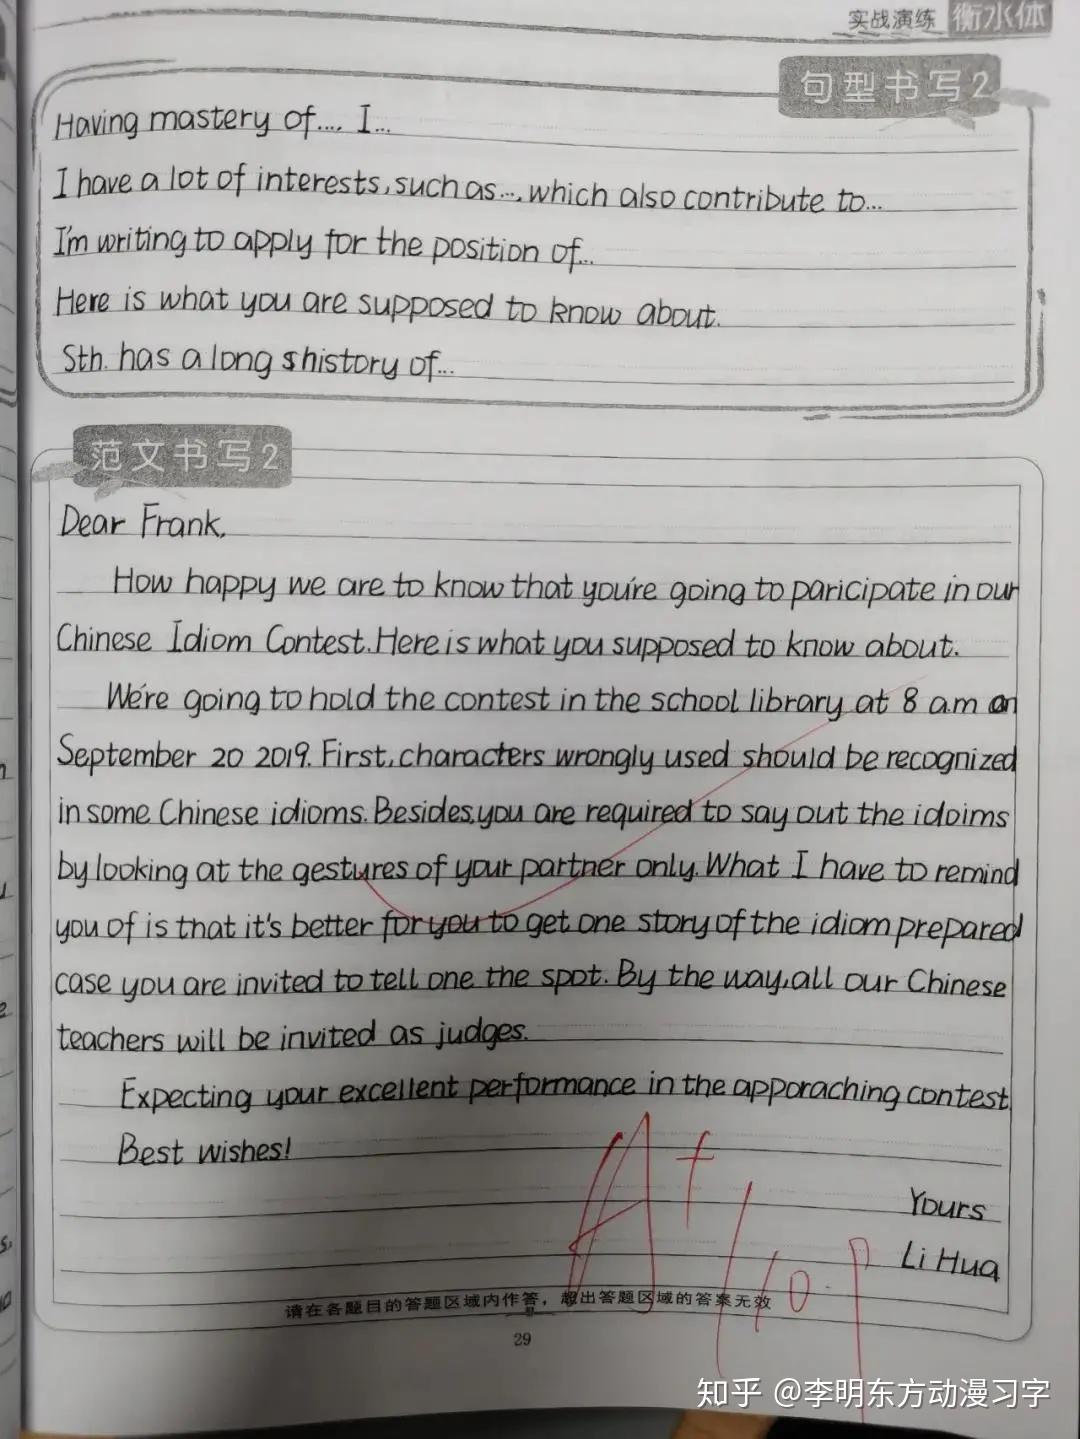 实战演练 衡水体
句型书写2
Having mastery of.... I...
I have a lot of interests, such as..., which also contribute to...
I'm writing to apply for the position of...
Here is what you are supposed to know about.
Sth. has a long shistory of...
范文书写2
Dear Frank,
How happy we are to know that you're going to paricipate in our
Chinese Idiom Contest. Here is what you supposed to know about.
We're going to hold the contest in the school library at 8 a.m on
September 20 2019. First, characters wrongly used should be recognized
in some Chinese idioms. Besides, you are required to say out the idoims
by looking at the gestures of your partner only. What I have to remind
you of is that it's better for you to get one story of the idiom prepared
case you are invited to tell one the spot. By the way, all our Chinese
teachers will be invited as judges.
Expecting your excellent performance in the apporaching contest.
Best wishes!
Yours
Li Hua
A+
请在各题目的答题区域内作答，超出答题区域的答案无效
29
知乎 @李明东方动漫习字